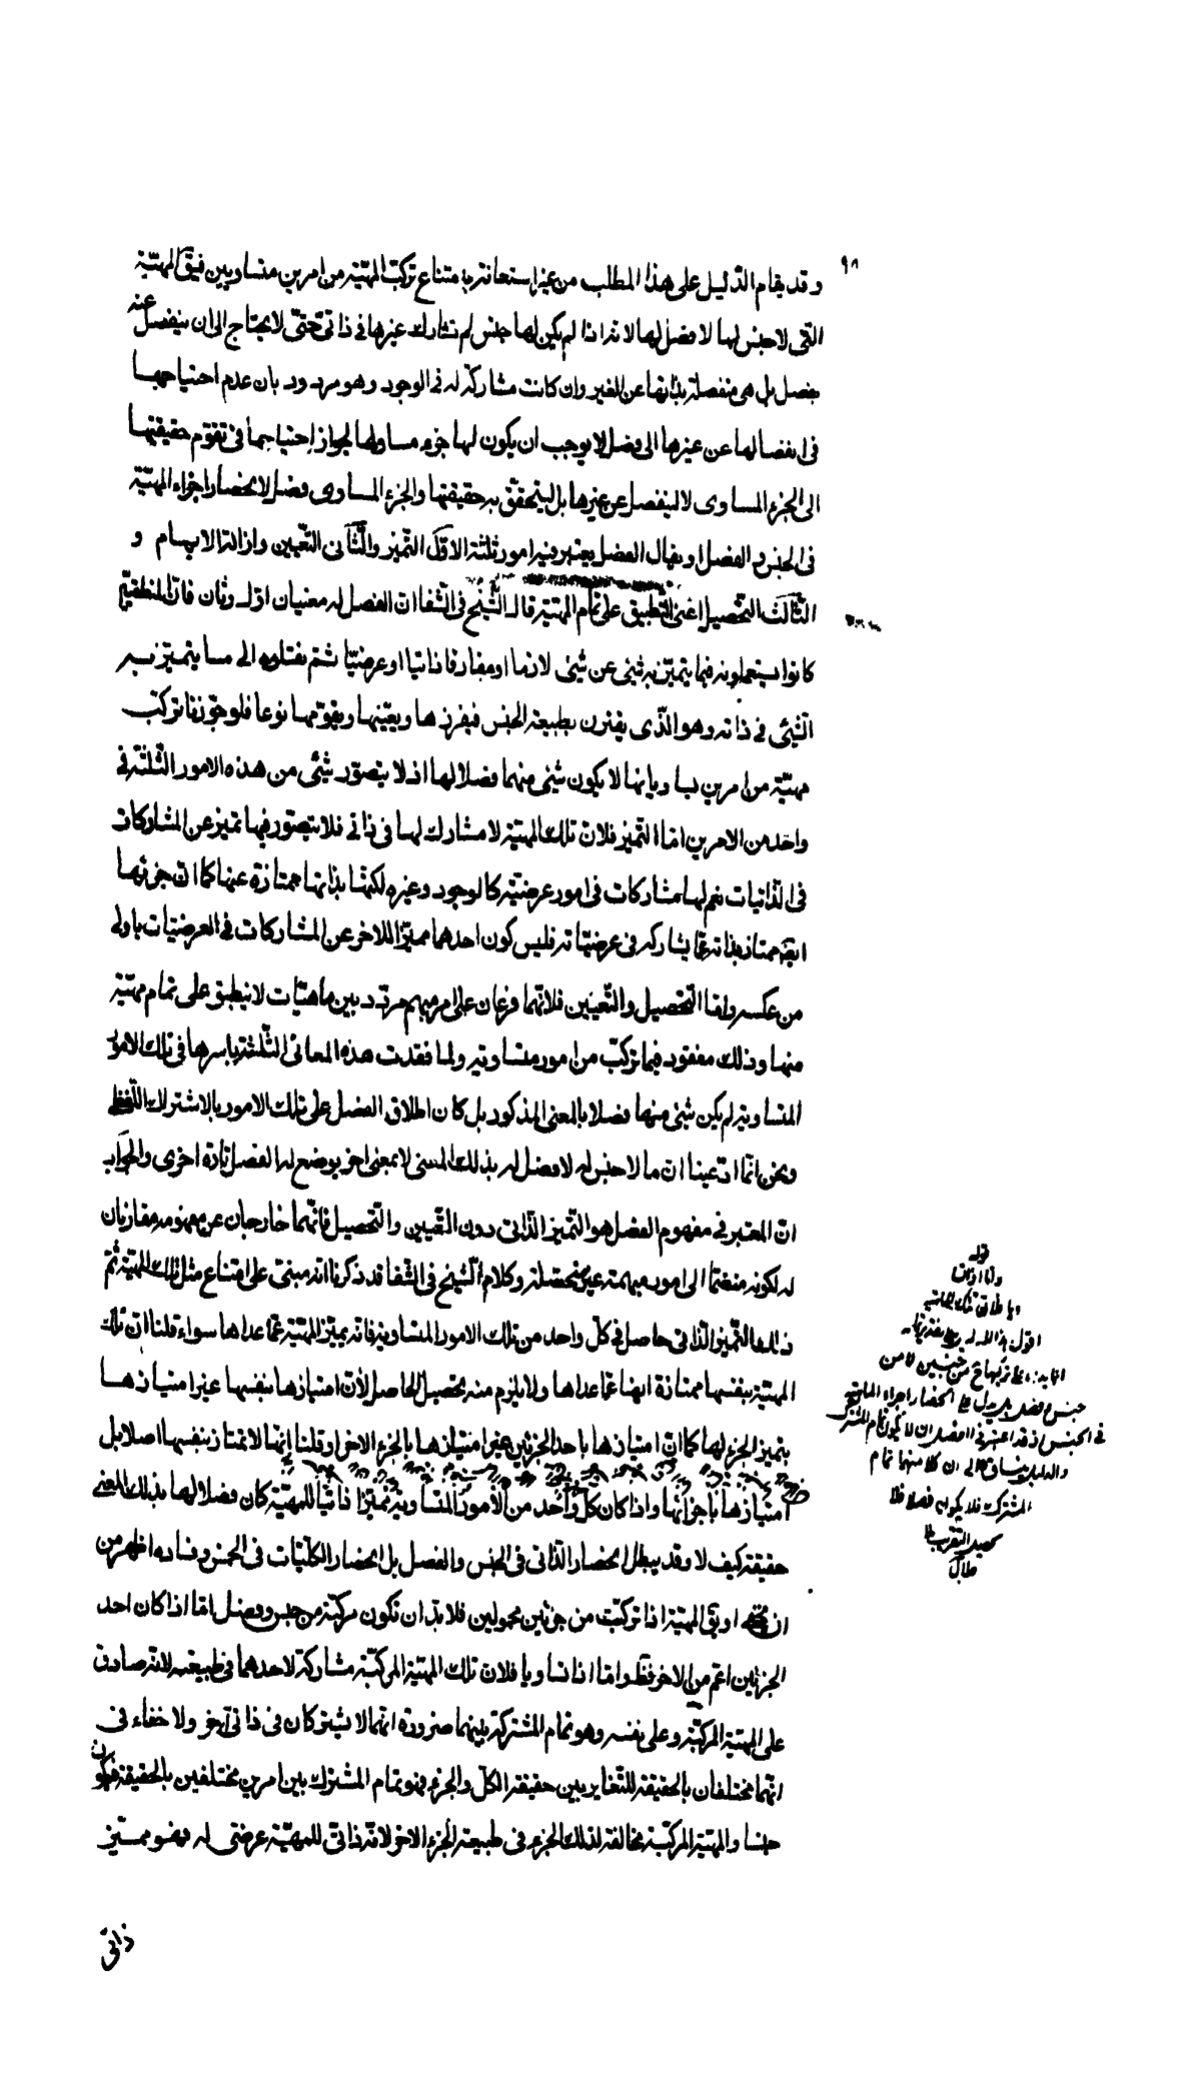 ٩٨
وقد يقام الدّليل على هذا المطلب من غير استعانة بامتناع تركّب المهيّة من امرين متساويين فيق المهيّة
التى لا جنس لها لا فصل لها لانه اذا لم يكن لها جنس لم تشارك غيرها فى ذاتىّ حتّى لا يحتاج الى ان ينفصل عنه
بفصل بل هى منفصلة بذاتها عن الغير وان كانت مشاركة له فى الوجود وهو مردود بان عدم احتياجها
فى انفصالها عن غيرها الى فصل لا يوجب ان يكون لها جزء مساو لها لجواز احتياجها فى تقوّم حقيقتها
الى الجزء المساوى لا لينفصل عن غيرها بل ليتحقّق به حقيقتها والجزء المساوى فصل لانحصار اجزاء المهيّة
فى الجنس والفصل او يقال الفصل يعتبر فيه امور ثلثة الاوّل التّميز والثّانى التّعيين وازالة الابهام و
الثّالث التّحصيل اعنى التّطبيق على تمام المهيّة قال الشّيخ فى الشّفا انّ الفصل له معنيان اوّل وثان فانّ المنطقيّين
كانوا يستعملونه فيما يتميّز به شئ عن شئ لازما او مفارقا ذاتيا او عرضيّا ثمّ نقلوه الى ما يتميّز به
الشّئ فى ذاته وهو الّذى يقترن بطبيعة الجنس فيفرزها ويعيّنها ويقوّمها نوعا فلو جوّزنا تركّب
مهيّة من امرين يساويانها لا يكون شئ منهما فصلا لها اذ لا يتصوّر شئ من هذه الامور الثّلثة فى
واحد من الامرين امّا التّميز فلانّ تلك المهيّة لا مشارك لها فى ذاتى فلا يتصوّر فيها تميز عن المشاركات
فى الذّاتيات نعم لها مشاركات فى امور عرضيّة كالوجود وغيره لكنّها بذاتها ممتازة عنها كما انّ جزئها
ايضا ممتاز بذاته عمّا يشاركه فى عرضيّاته فليس كون احدهما مميّزا للاخر عن المشاركات فى العرضيّات باولى
من عكسه وامّا التّحصيل والتّعيين فلانّهما فرعان على امر مبهم مردّد بين ماهيّات لا ينطبق على تمام مهيّة
منها وذلك مفقود فيما تركّب من امور متساوية ولما فقدت هذه المعانى الثّلثة باسرها فى تلك الامور
المتساوية لم يكن شئ منها فصلا بالمعنى المذكور بل كان اطلاق الفصل على تلك الامور بالاشتراك اللّفظى
ونحن انّما ادّعينا ان ما لا جنس له لا فصل له بذلك المعنى لا بمعنى اخر يوضع له الفصل تارة اخرى والجواب
انّ المعتبر فى مفهوم الفصل هو التّميز الذّاتى دون التّعيين والتّحصيل فانّهما خارجان عن مفهومه مقارنان
له لكونه منضمّا الى امور مبهمة غير متحصّلة وكلام الشّيخ فى الشّفا قد ذكرنا انه مبنىّ على امتناع مثل تلك المهيّة ثمّ
ذلك التّميز الذّاتى حاصل فى كلّ واحد من تلك الامور المتساوية فانّه يميّز المهيّة عمّا عداها سواء قلنا انّ تلك
المهيّة بنفسها ممتازة ايضا عمّا عداها ولا يلزم منه تحصيل الحاصل لانّ امتيازها بنفسها غير امتيازها
بتميز الجزء لها كما انّ امتيازها باحد الجزئين غير امتيازها بالجزء الاخر او قلنا انّها لا تمتاز بنفسها اصلا بل
امتيازها باجزائها واذا كان كلّ واحد من الامور المتساوية مميّزا ذاتيا للمهيّة كان فصلا لها بذلك المعنى
حقيقة كيف لا وقد يبطل انحصار الذّاتى فى الجنس والفصل بل انحصار الكلّيات فى الخمس وفساده اظهر من
ان يخفى او يق المهيّة اذا تركّبت من جزئين محمولين فلا بدّ ان تكون مركّبة من جنس وفصل امّا اذا كان احد
الجزئين اعمّ من الاخر فظ وامّا اذا تساويا فلانّ تلك المهيّة المركّبة مشاركة لاحدهما فى طبيعته لانّه صادق
على المهيّة المركّبة وعلى نفسه وهو تمام المشترك بينهما ضرورة انّهما لا يشتركان فى ذاتىّ اخر ولا خفاء فى
انّهما مختلفان بالحقيقة للتّغاير بين حقيقة الكلّ والجزء فهو تمام المشترك بين امرين مختلفين بالحقيقة فيكون
جنسا والمهيّة المركّبة مخالفة لذلك الجزء فى طبيعة الجزء الاخر لانّه ذاتىّ للمهيّة عرضى له فهو مميّز
ذاتى
قوله
اقول هذا
جنس وفصل
فى الجنس
المشترك فلا يكون فصلا فلا